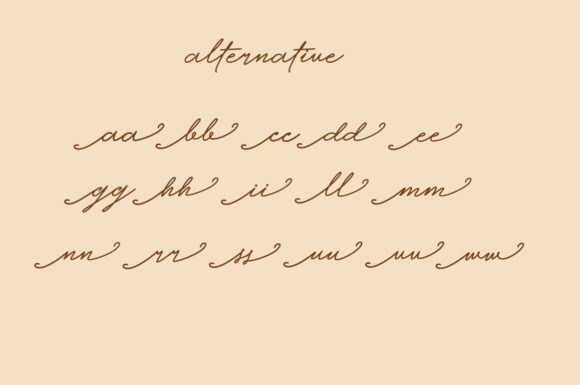 alternative
aa bb cc dd ee
gg hh ii ll mm
nn rr ss uu vv ww